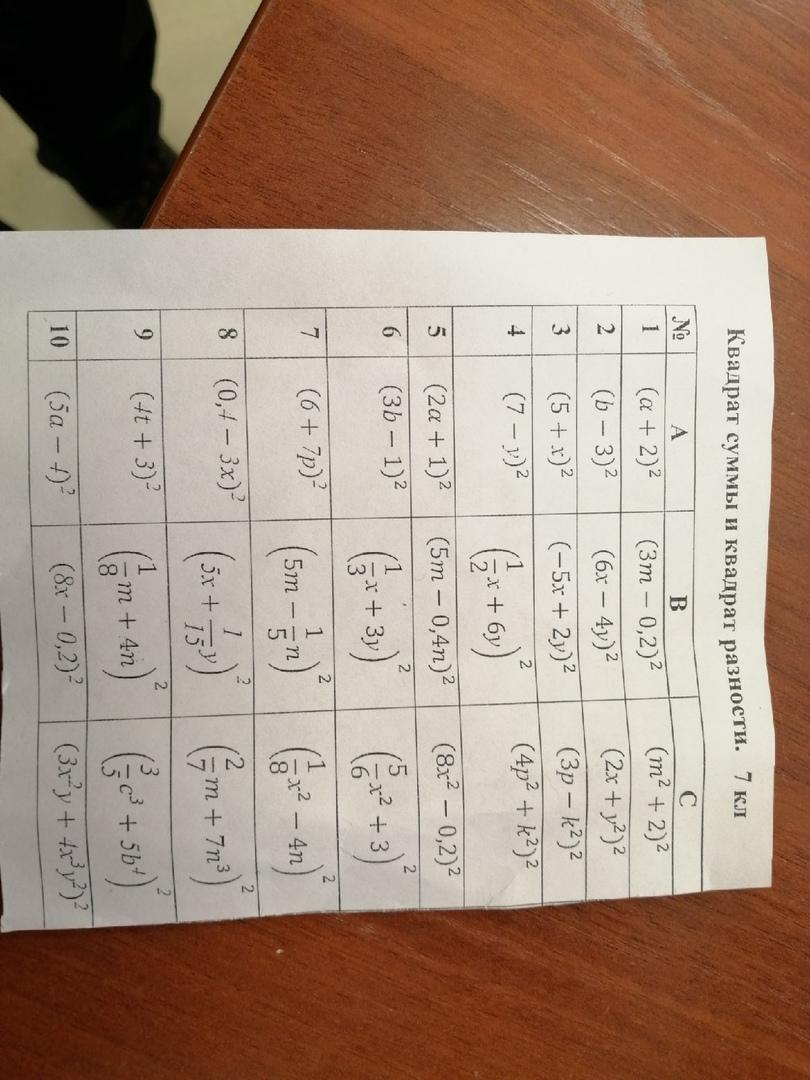 Квадрат суммы и квадрат разности. 7 кл
№ A B C
1 (a + 2)² (3m − 0,2)² (m² + 2)²
2 (b − 3)² (6x − 4y)² (2x + y²)²
3 (5 + x)² (−5x + 2y)² (3p − k²)²
4 (7 − y)² (1/2 x + 6y)² (4p² + k²)²
5 (2a + 1)² (5m − 0,4n)² (8x² − 0,2)²
6 (3b − 1)² (1/3 x + 3y)² (5/6 x² + 3)²
7 (6 + 7p)² (5m − 1/5 n)² (1/8 x² − 4n)²
8 (0,4 − 3x)² (5x + 1/15 y)² (2/7 m + 7n³)²
9 (4t + 3)² (1/8 m + 4n)² (3/5 c³ + 5b⁴)²
10 (5a − 4)² (8x − 0,2)² (3x²y + 4x³y²)²